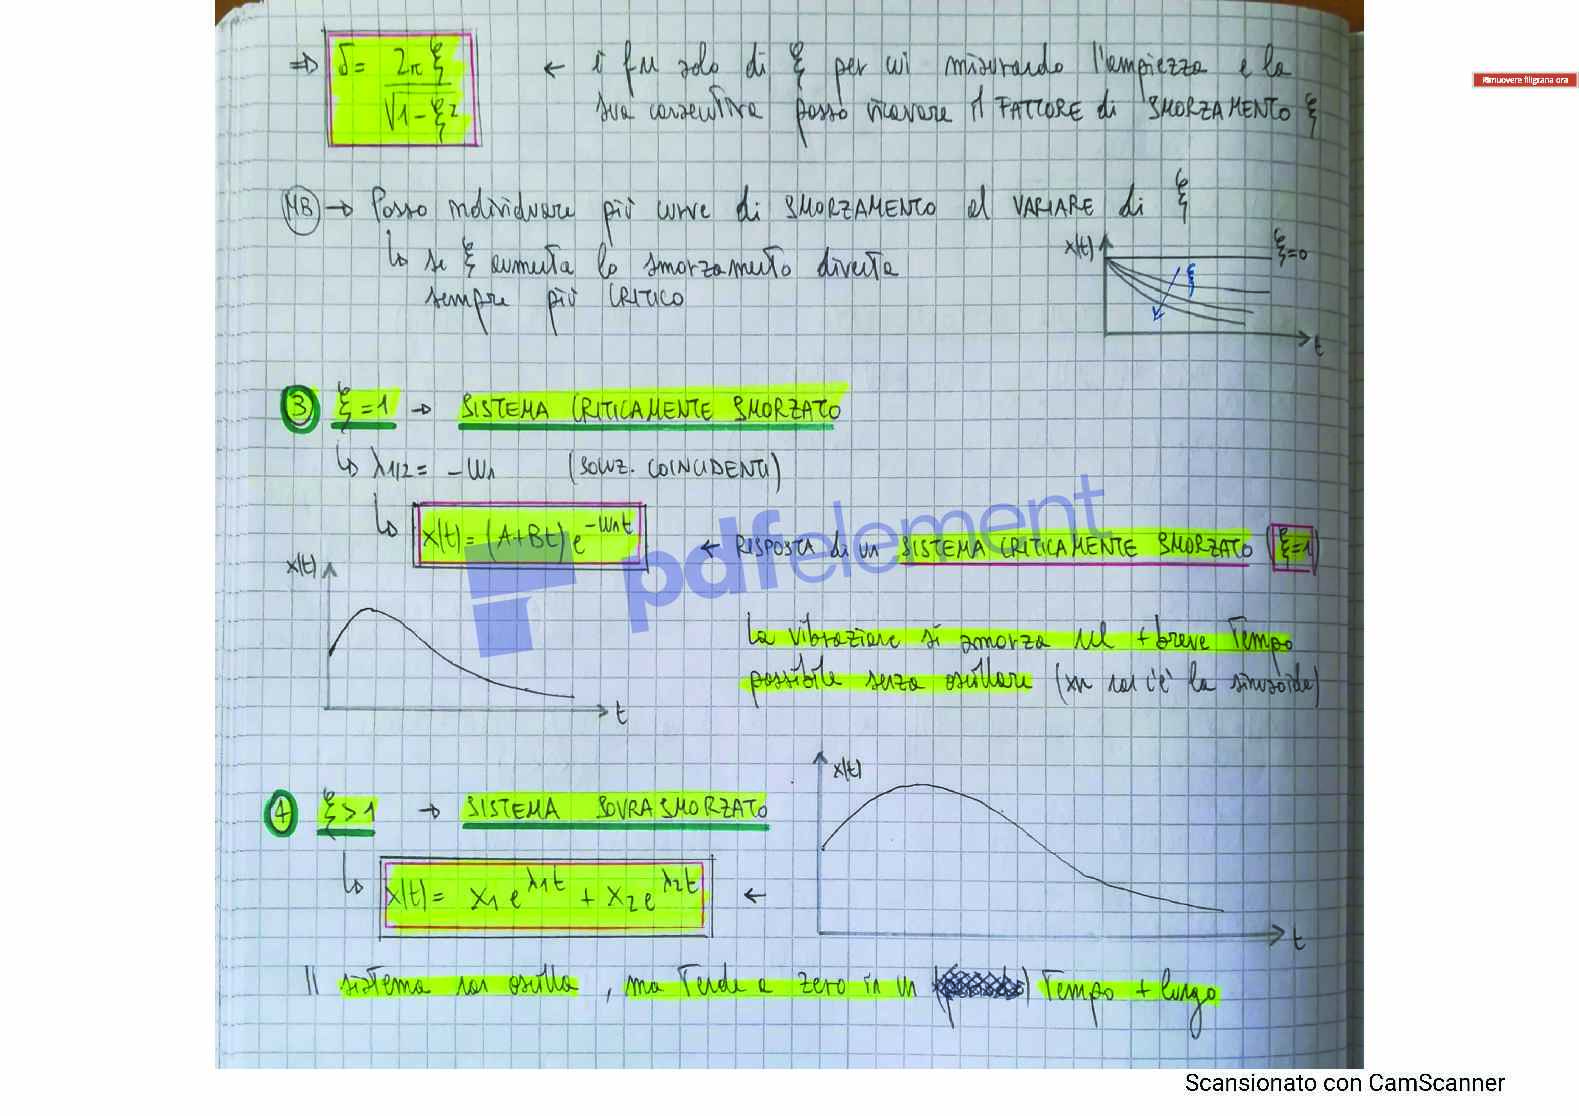 Rimuovere filigrana ora
⇒ δ = 2π ξ / √1-ξ² ← è fn solo di ξ per cui misurando l'ampiezza e la
sua consecutiva posso ricavare il FATTORE di SMORZAMENTO ξ
NB → Posso individuare più curve di SMORZAMENTO al VARIARE di ξ
↳ se ξ aumenta lo smorzamento diventa
sempre più CRITICO
x(t) ξ=0
ξ
t
3 ξ=1 → SISTEMA CRITICAMENTE SMORZATO
↳ λ1/2 = -ωn (SOLUZ. COINCIDENTI)
↳ x(t) = (A+Bt) e^-ωnt ← RISPOSTA di un SISTEMA CRITICAMENTE SMORZATO ξ=1
pdfelement
x(t)
t
La vibrazione si smorza nel + breve Tempo
possibile senza oscillare (xn non c'è la sinusoide)
x(t)
t
4 ξ>1 → SISTEMA SOVRASMORZATO
↳ x(t) = X1 e^λ1t + X2 e^λ2t ←
Il sistema non oscilla, ma Tende a zero in un Tempo + lungo
Scansionato con CamScanner